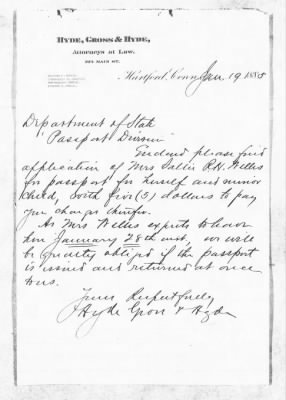 HYDE, GROSS & HYDE,
Attorneys at Law.
Hartford, Conn. Jan. 19 1885
Department of State
Passport Division
Enclosed please find
application of Mrs Sallie R.H. Willis
for passport for herself and minor
child, with five (5) dollars to pay
your charges therefor.
As Mrs Willis expects to leave
here January 28th inst, we will
be greatly obliged if the passport
is issued and returned at once
to us.
Yours Respectfully
Hyde Gross & Hyde